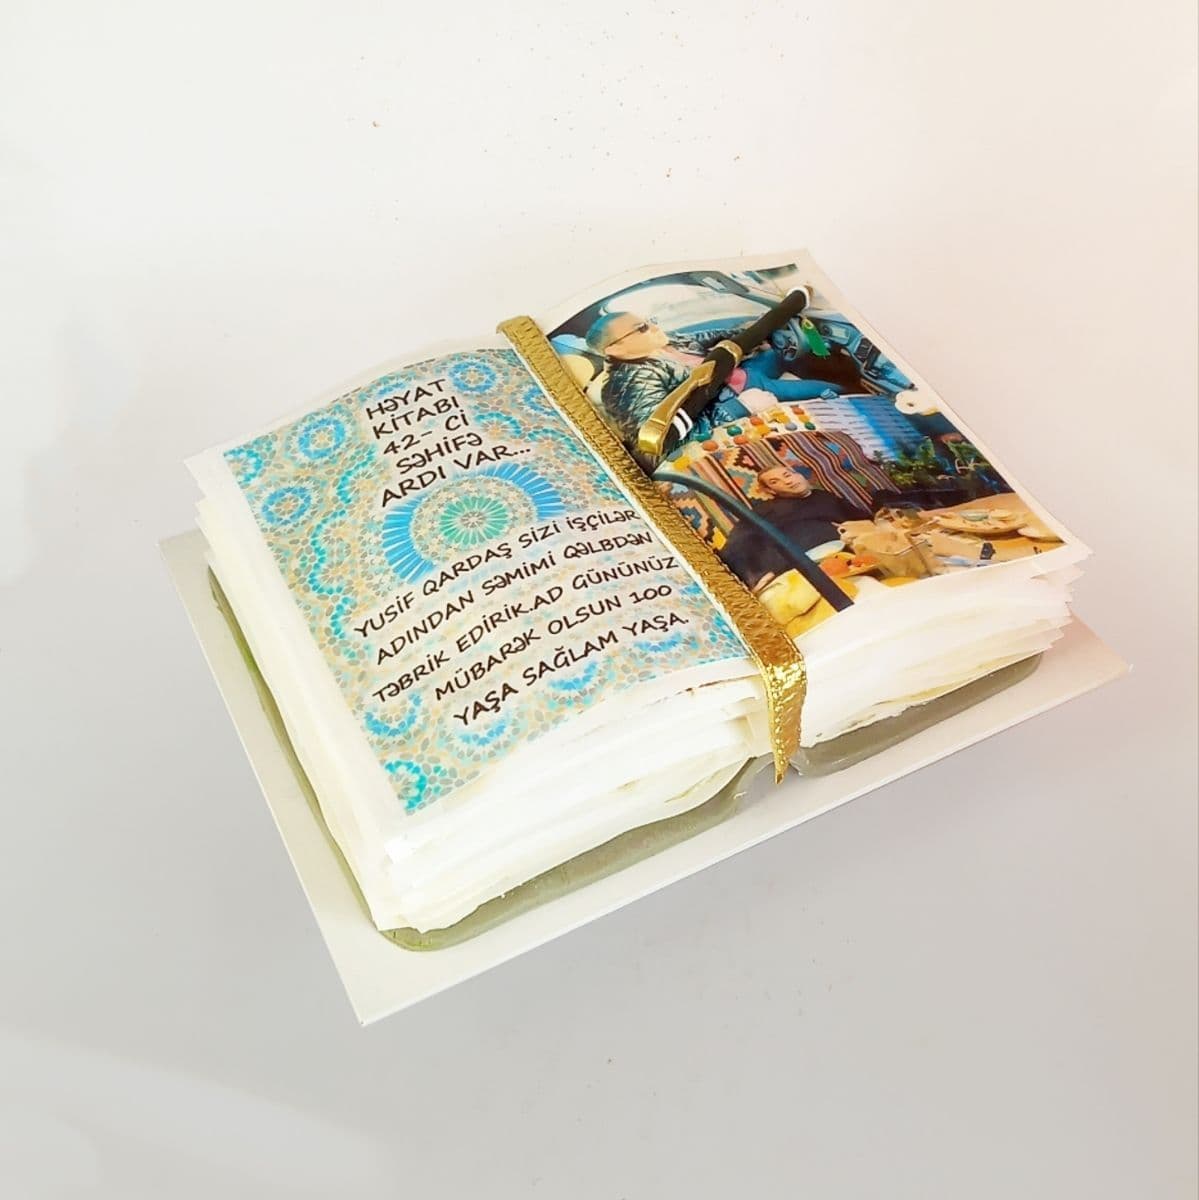 HƏYAT
KİTABI
42- Cİ
SƏHİFƏ
ARDI VAR...
YUSİF QARDAŞ SİZİ İŞÇİLƏR
ADINDAN SƏMİMİ QƏLBDƏN
TƏBRİK EDİRİK.AD GÜNÜNÜZ
MÜBARƏK OLSUN 100
YAŞA SAĞLAM YAŞA.